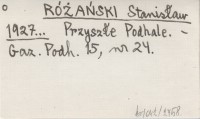 RÓŻAŃSKI Stanisław
1927... Przyszłe Podhale. -
Gaz. Podh. 15, nr 24.